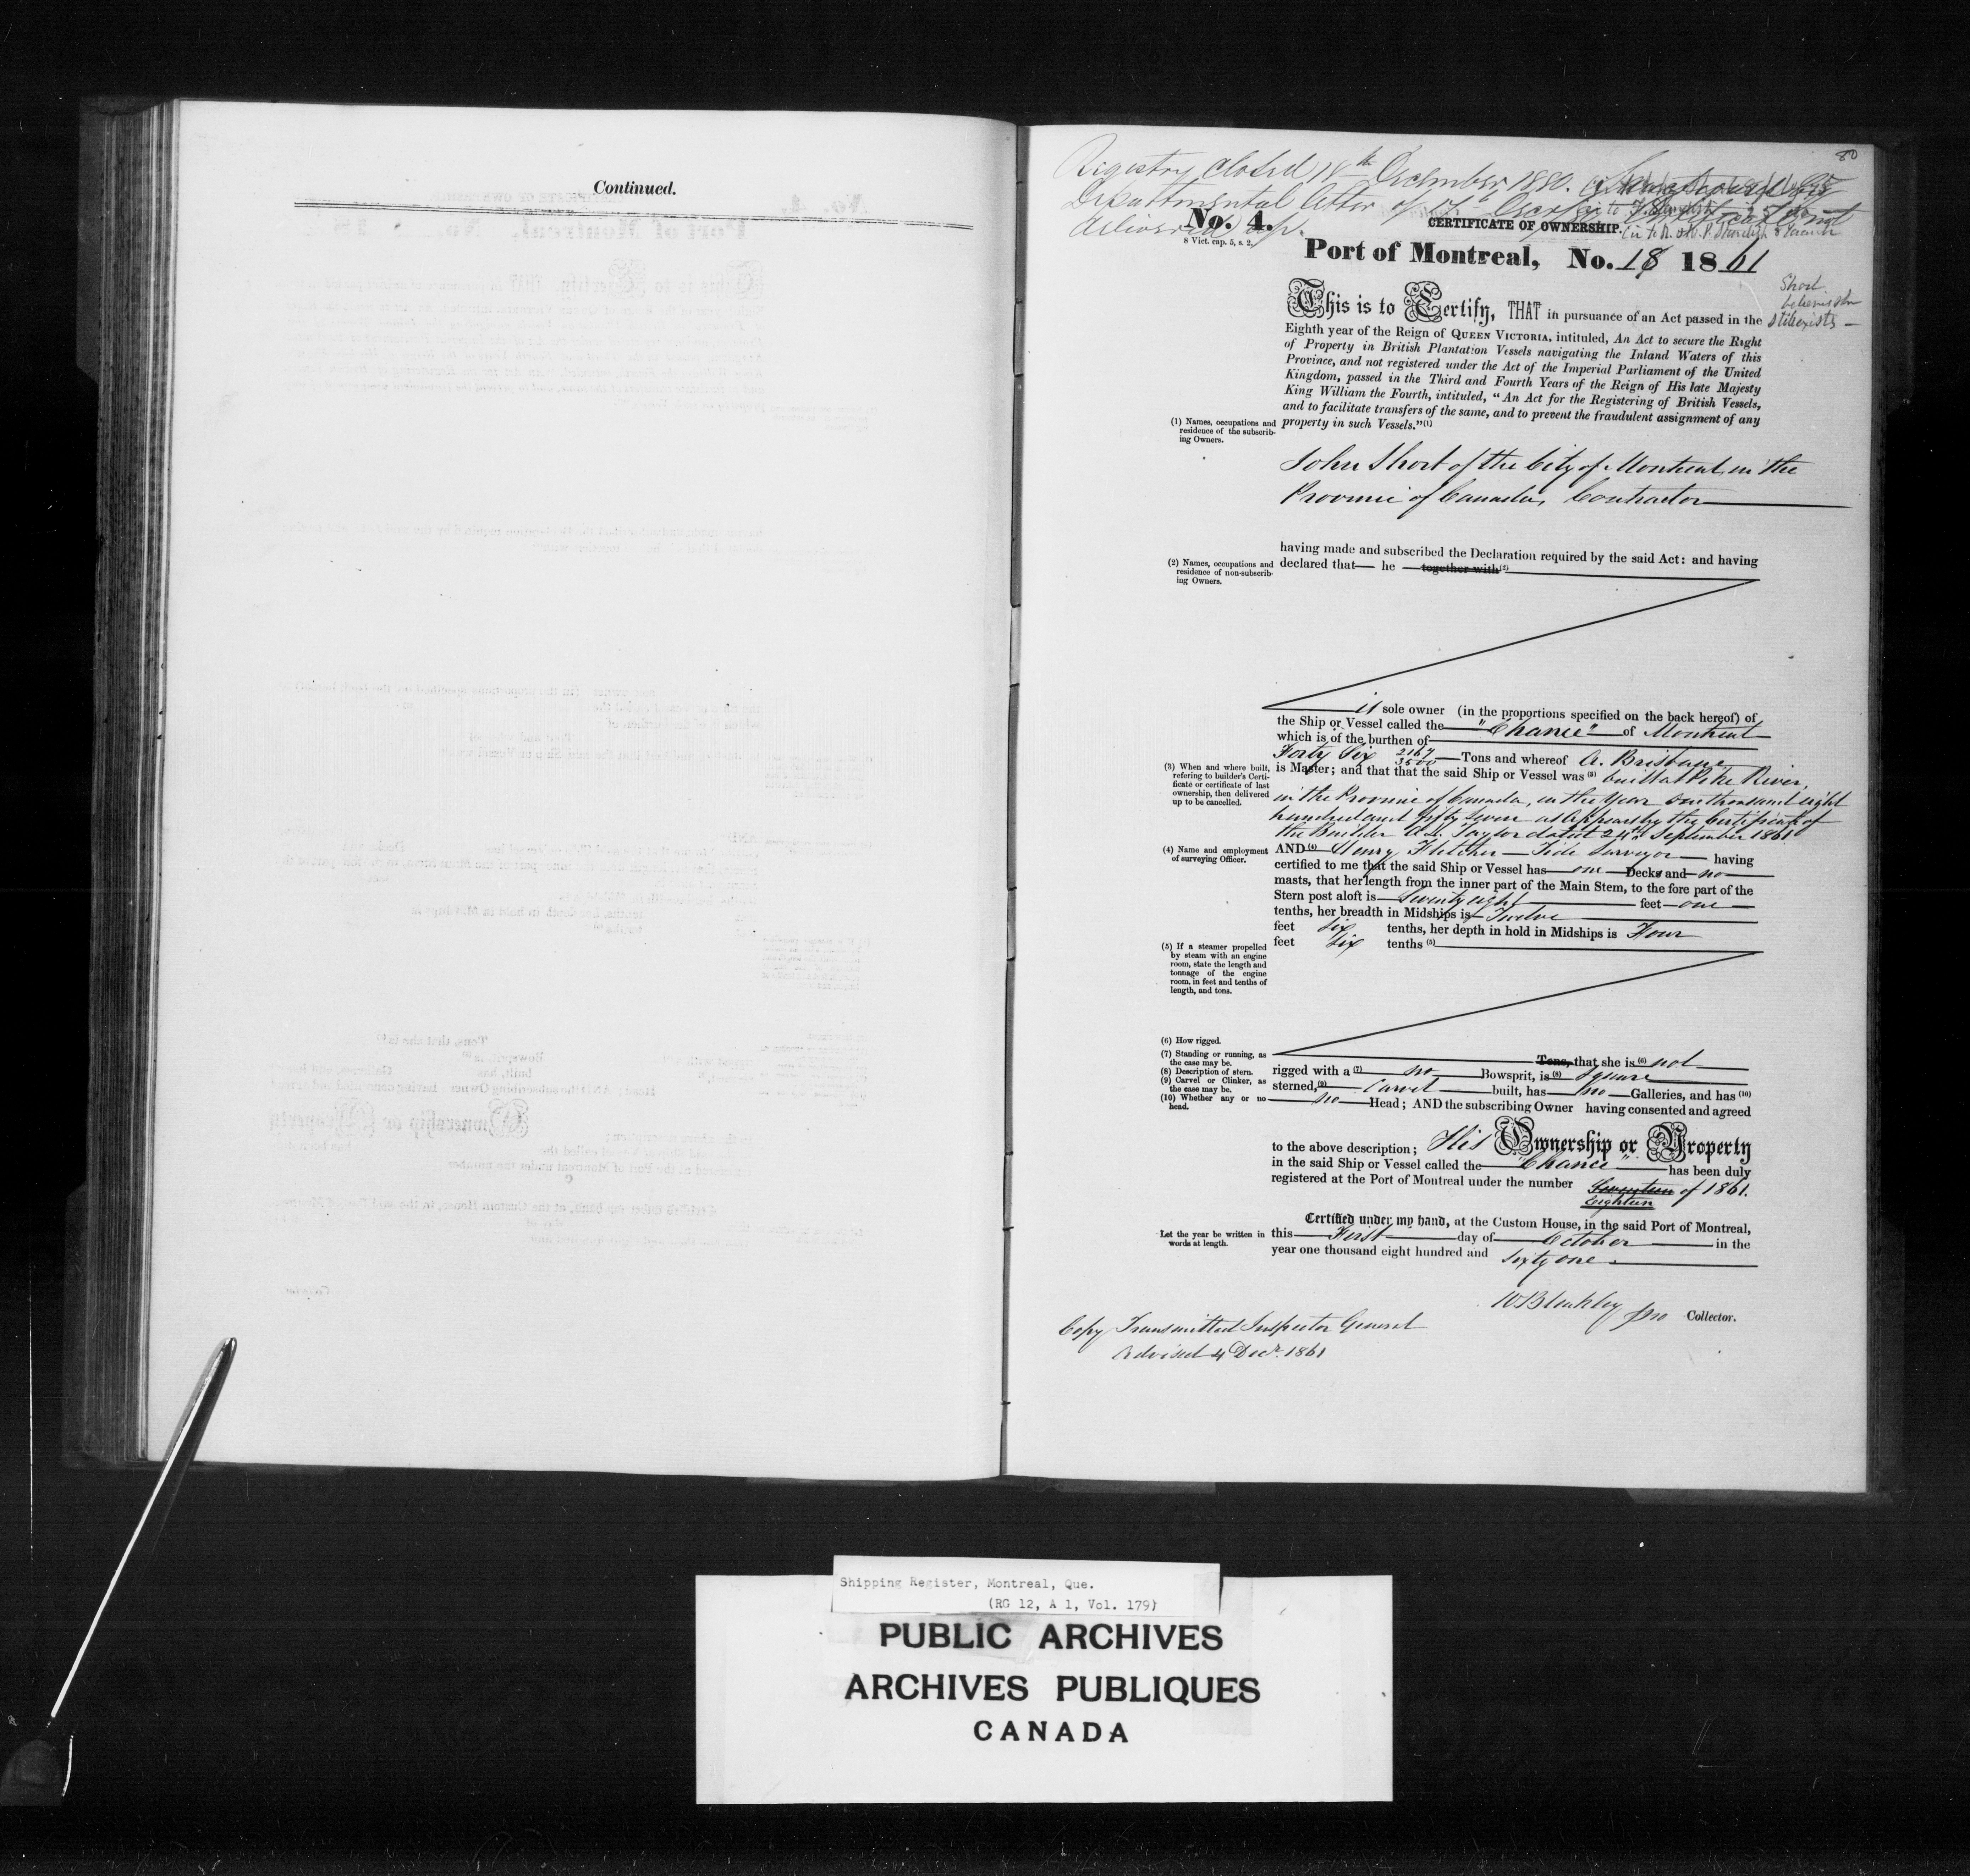 Continued.
80
Registry closed 18th December 1880.
Departmental letter of 17th
delivered up.
No. 4.
8 Vict. cap. 5, s. 2.
CERTIFICATE OF OWNERSHIP.
Port of Montreal, No. 18 1861
Short
believes she
still exists —
This is to Certify, THAT in pursuance of an Act passed in the
Eighth year of the Reign of QUEEN VICTORIA, intituled, An Act to secure the Right
of Property in British Plantation Vessels navigating the Inland Waters of this
Province, and not registered under the Act of the Imperial Parliament of the United
Kingdom, passed in the Third and Fourth Years of the Reign of His late Majesty
King William the Fourth, intituled, "An Act for the Registering of British Vessels,
and to facilitate transfers of the same, and to prevent the fraudulent assignment of any
property in such Vessels."(1)
(1) Names, occupations and
residence of the subscrib-
ing Owners.
John Short of the City of Montreal in the
Province of Canada, Contractor
having made and subscribed the Declaration required by the said Act: and having
declared that he together with (2)
(2) Names, occupations and
residence of non-subscrib-
ing Owners.
is sole owner (in the proportions specified on the back hereof) of
the Ship or Vessel called the "Chance" of Montreal
which is of the burthen of
Forty Six 2167/3500 Tons and whereof A. Brisbane
is Master; and that that the said Ship or Vessel was (3) built at Pike River,
in the Province of Canada, in the Year one thousand eight
hundred and fifty seven as appears by the Certificate of
the Builder A. L. Taylor dated 24th September 1861
(3) When and where built,
refering to builder's Certi-
ficate or certificate of last
ownership, then delivered
up to be cancelled.
AND (4) Henry Fletcher — Tide Surveyor — having
(4) Name and employment
of surveying Officer.
certified to me that the said Ship or Vessel has one Decks and no
masts, that her length from the inner part of the Main Stem, to the fore part of the
Stern post aloft is Seventy eight feet one
tenths, her breadth in Midships is Twelve
feet six tenths, her depth in hold in Midships is Four
feet six tenths (5)
(5) If a steamer propelled
by steam with an engine
room, state the length and
tonnage of the engine
room, in feet and tenths of
length, and tons.
(6) How rigged.
(7) Standing or running, as
the case may be.
(8) Description of stern.
(9) Carvel or Clinker, as
the case may be.
(10) Whether any or no
head.
Tons, that she is (6) not
rigged with a (7) no Bowsprit, is (8) Square
sterned, (9) Carvel built, has no Galleries, and has (10)
no Head; AND the subscribing Owner having consented and agreed
to the above description; His Ownership or Property
in the said Ship or Vessel called the "Chance" has been duly
registered at the Port of Montreal under the number Seventeen of 1861.
Eighteen
Certified under my hand, at the Custom House, in the said Port of Montreal,
this First day of October in the
year one thousand eight hundred and sixty one.
Let the year be written in
words at length.
W Bleakley pro Collector.
Copy Transmitted Inspector General
Advised 4 Decr. 1861
Shipping Register, Montreal, Que.
(RG 12, A 1, Vol. 179)
PUBLIC ARCHIVES
ARCHIVES PUBLIQUES
CANADA